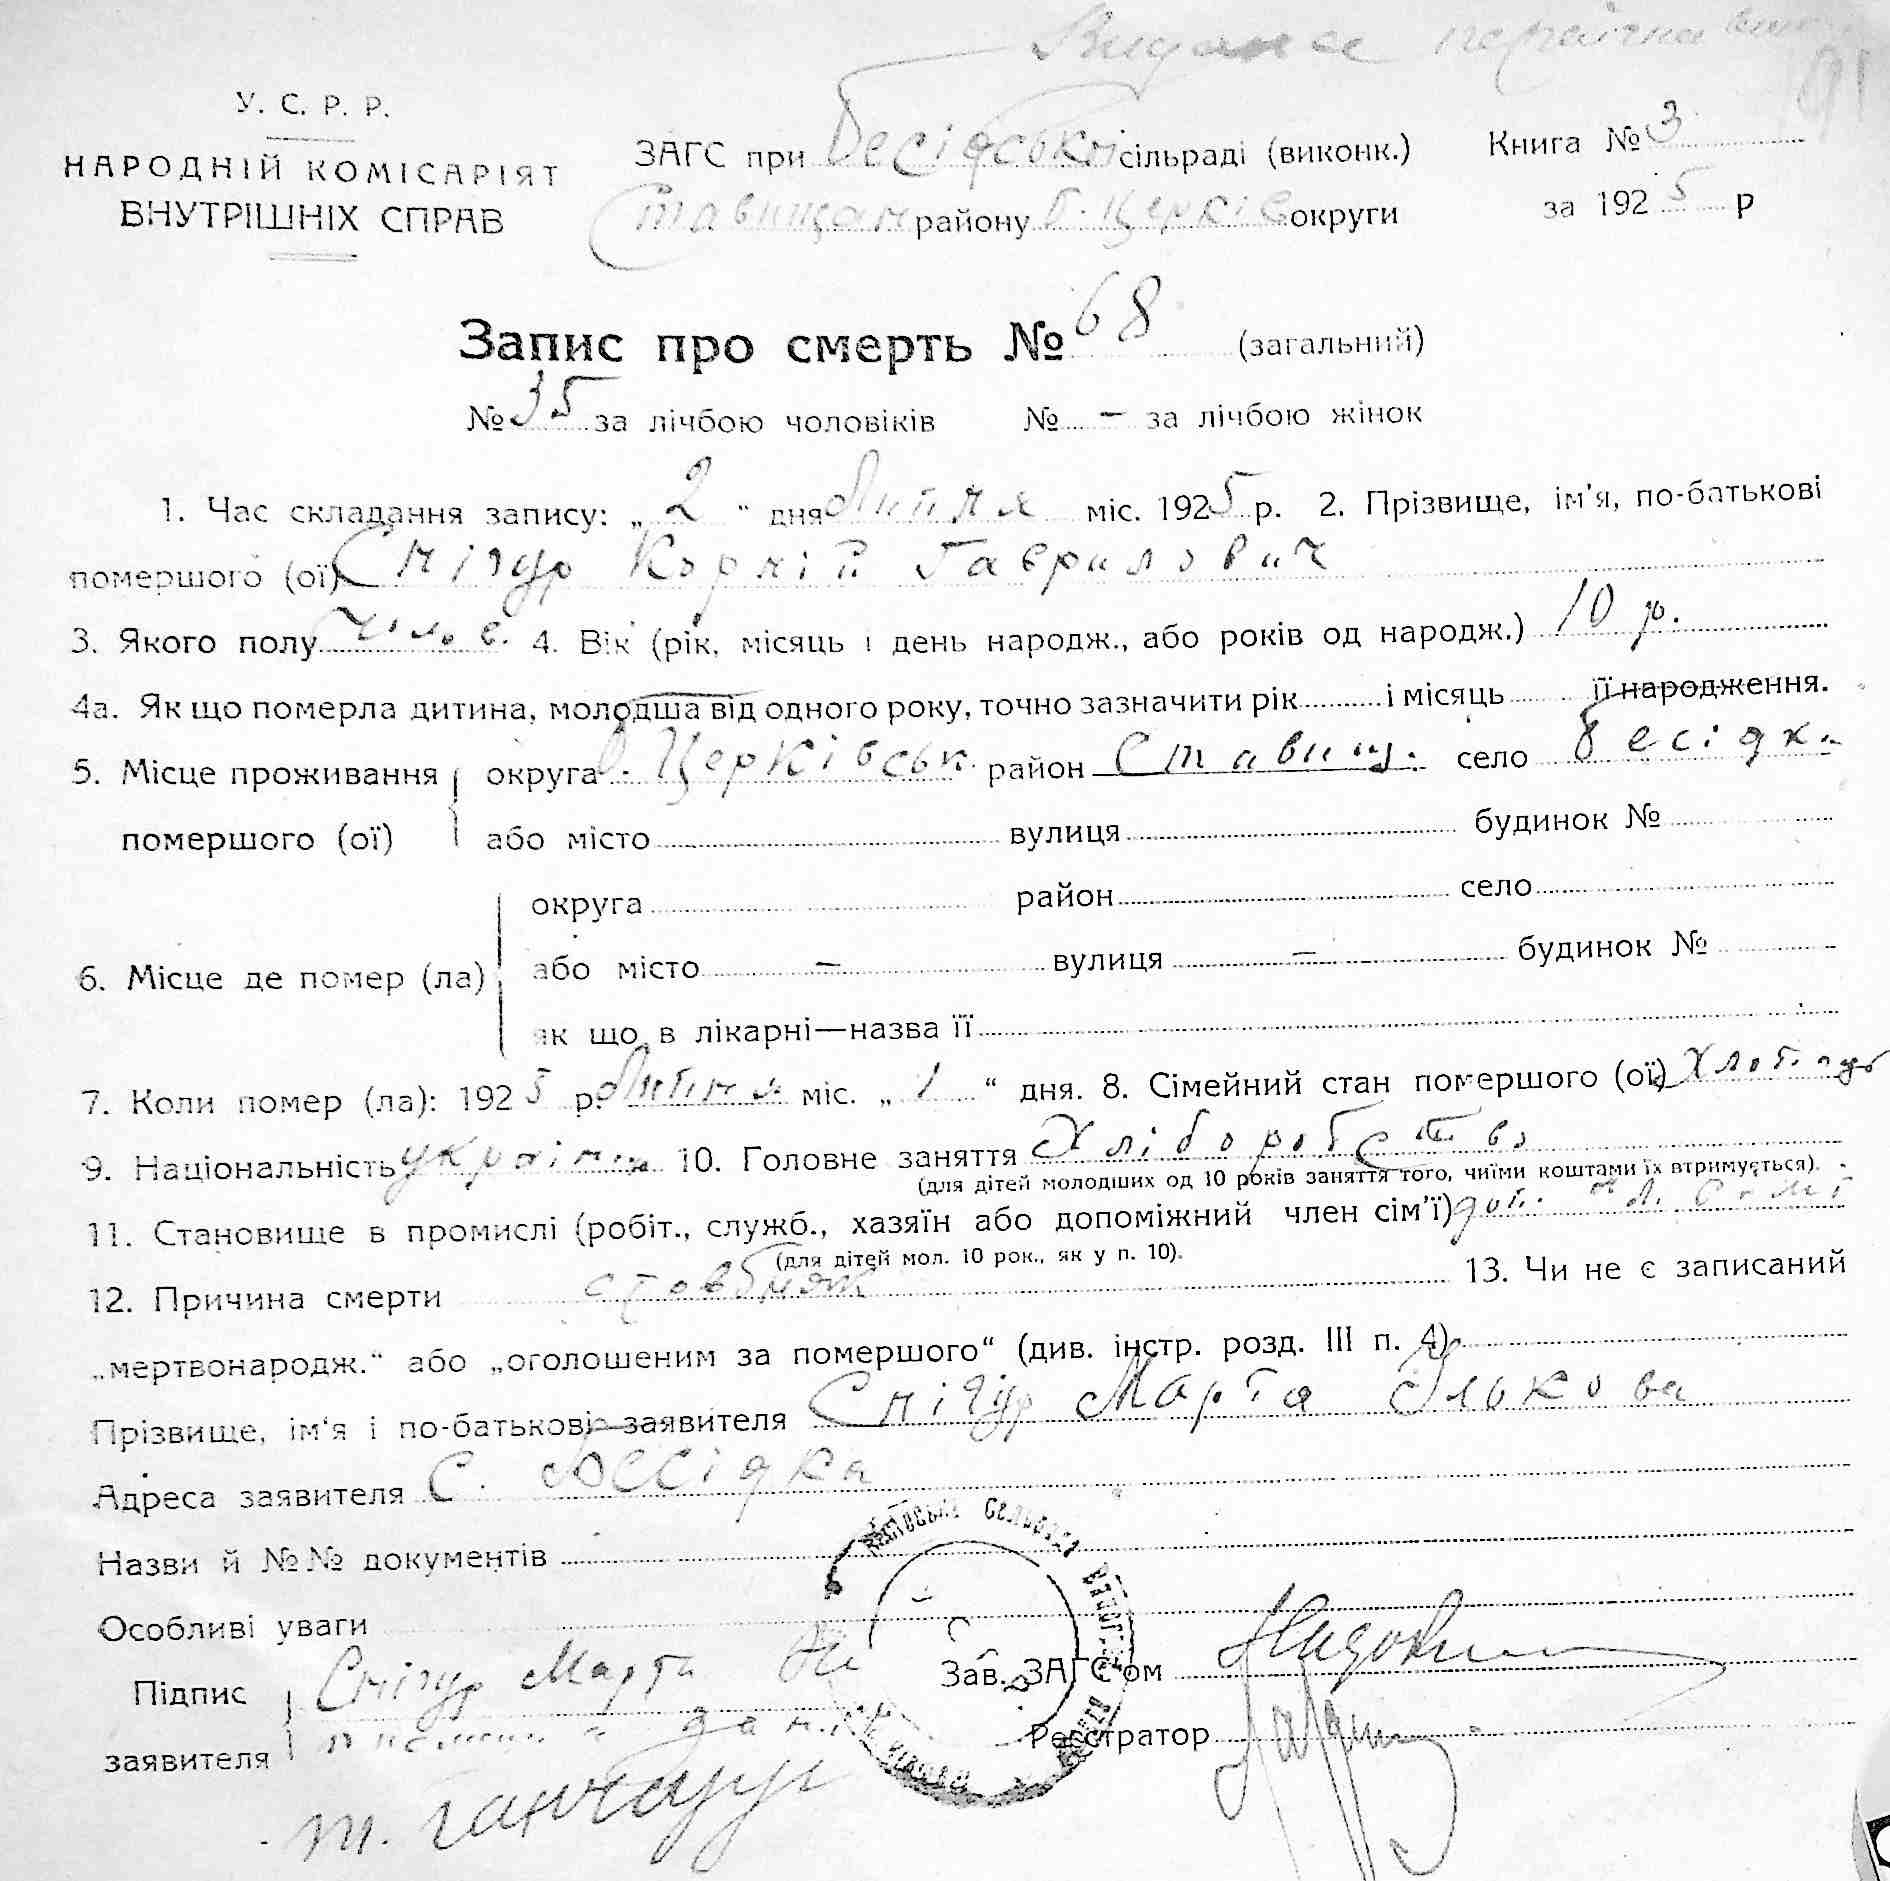 Видана
У. С. Р. Р.
НАРОДНІЙ КОМІСАРІЯТ
ВНУТРІШНІХ СПРАВ
ЗАГС при Бесідськ сільраді (виконк.) Книга № 3
Ставищан району Б. Церків округи за 1925 р
Запис про смерть № 68 (загальний)
№ 35 за лічбою чоловіків № – за лічбою жінок
1. Час складання запису: „ 2 “ дня Липня міс. 1925 р. 2. Прізвище, ім'я, по-батькові
помершого (ої) Снігур Корній Гаврилович
3. Якого полу чолов. 4. Вік (рік, місяць і день народж., або років од народж.) 10 р.
4а. Як що померла дитина, молодша від одного року, точно зазначити рік і місяць її народження.
5. Місце проживання округа Б. Церківськ. район Ставищ. село Бесідка
помершого (ої) або місто вулиця будинок №
округа район село
6. Місце де помер (ла) або місто – вулиця – будинок №
як що в лікарні—назва її
7. Коли помер (ла): 1925 р. Липня міс. „ 1 “ дня. 8. Сімейний стан помершого (ої) Хлопець
9. Національність 10. Головне заняття Хліборобство
(для дітей молодших од 10 років заняття того, чиїми коштами їх втримується).
11. Становище в промислі (робіт., служб., хазяїн або допоміжний член сім'ї) доп.
(для дітей мол. 10 рок., як у п. 10).
12. Причина смерти стовбняк 13. Чи не є записаний
„мертвонародж.“ або „оголошеним за помершого“ (див. інстр. розд. III п. 4)
Прізвище, ім'я і по-батькові заявителя Снігур Марта Ількова
Адреса заявителя с. Бесідка
Назви й №№ документів
Особливі уваги
Підпис Снігур Марта Не Зав. ЗАГС'ом
заявителя Реєстратор